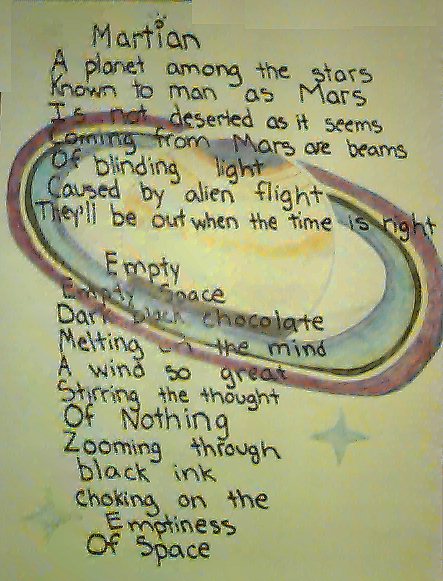 Martian
A planet among the stars
Known to man as Mars
Is not deserted as it seems
Coming from Mars are beams
Of blinding light
Caused by alien flight
They'll be out when the time is right
Empty
Empty Space
Dark black chocolate
Melting on the mind
A wind so great
Stirring the thought
Of Nothing
Zooming through
black ink
choking on the
Emptiness
Of Space